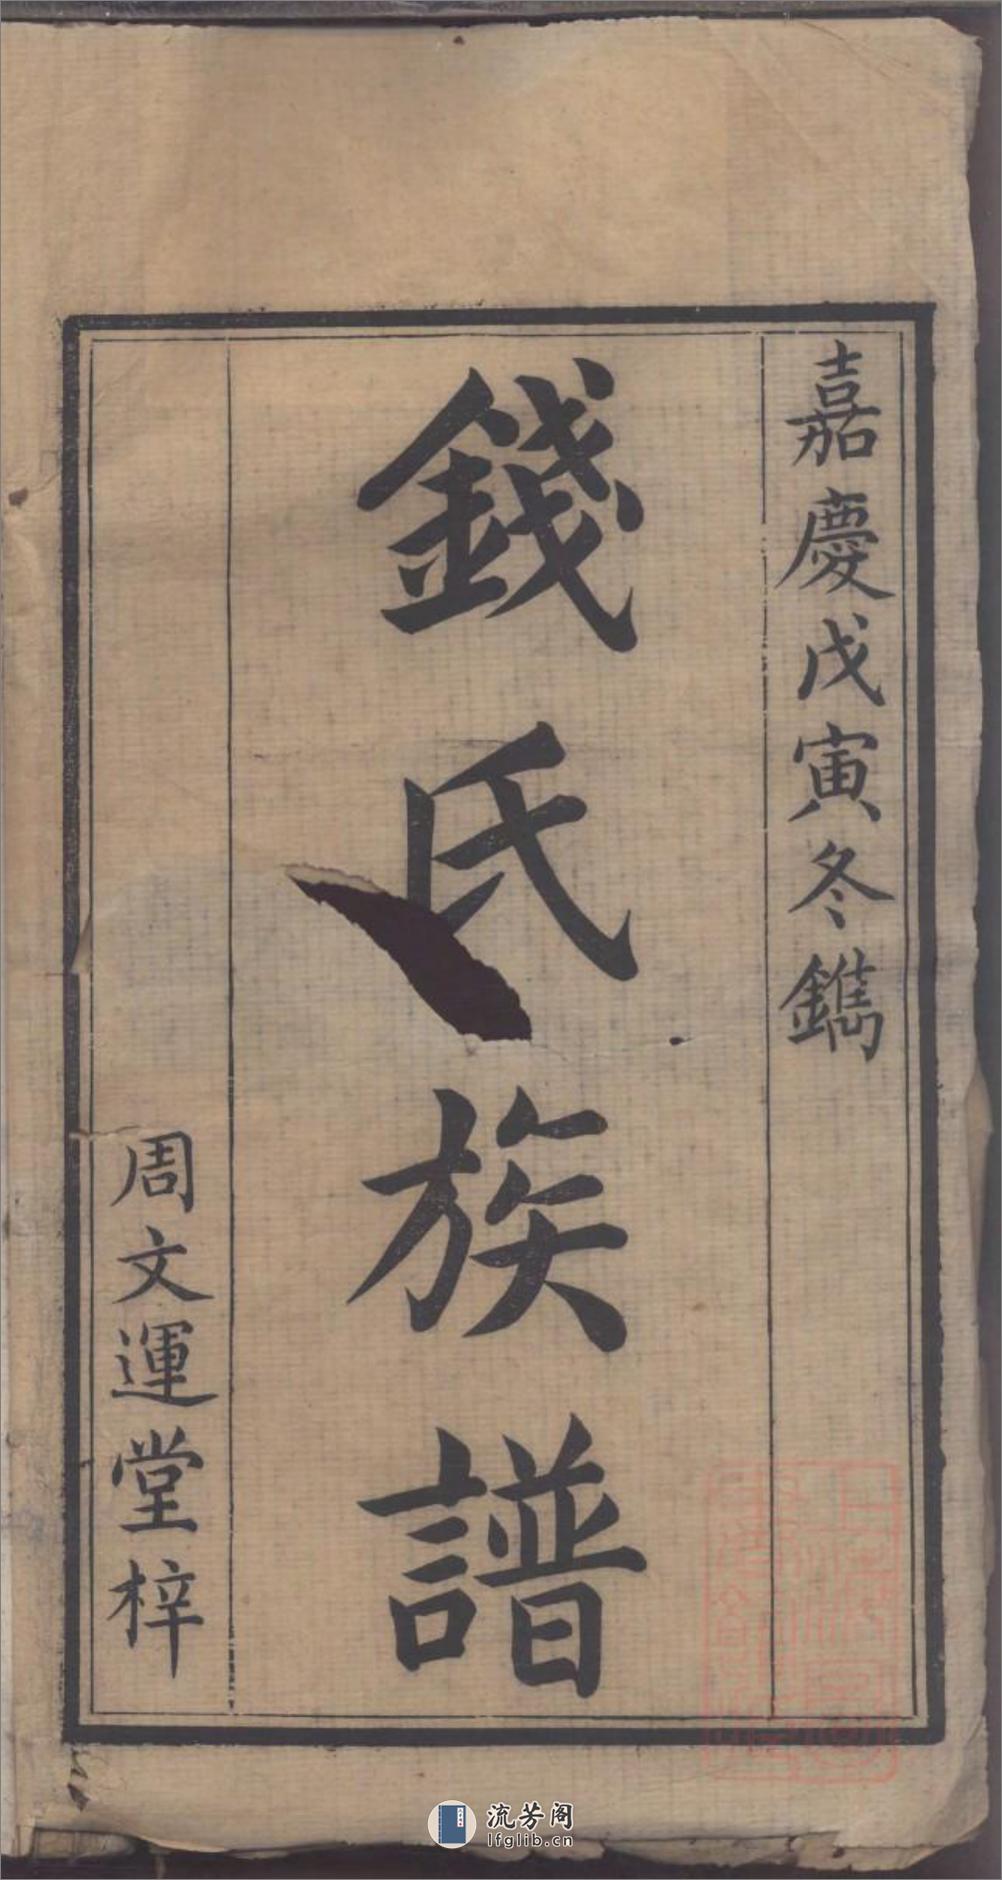 嘉慶戊寅冬鐫
錢氏族譜
周文運堂梓
流芳阁
lfglib.cn